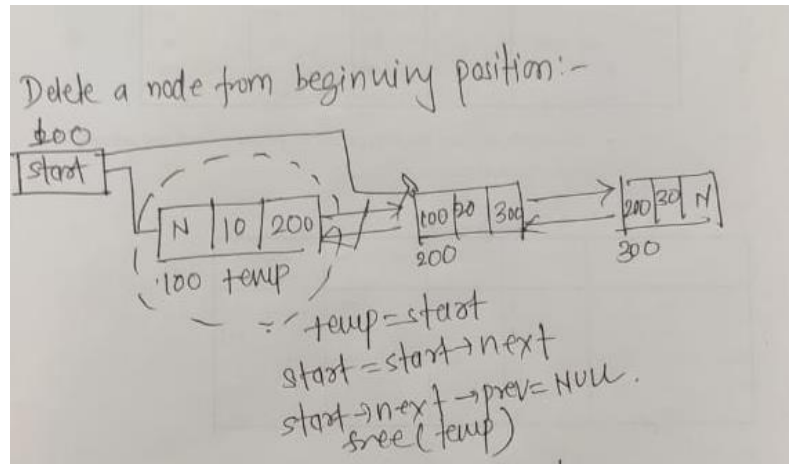 Delete a node from beginning position:-
200
start
N 10 200
100 temp
100 20 300
200
200 30 N
300
temp=start
start=start→next
start→next→prev=NULL.
free(temp)